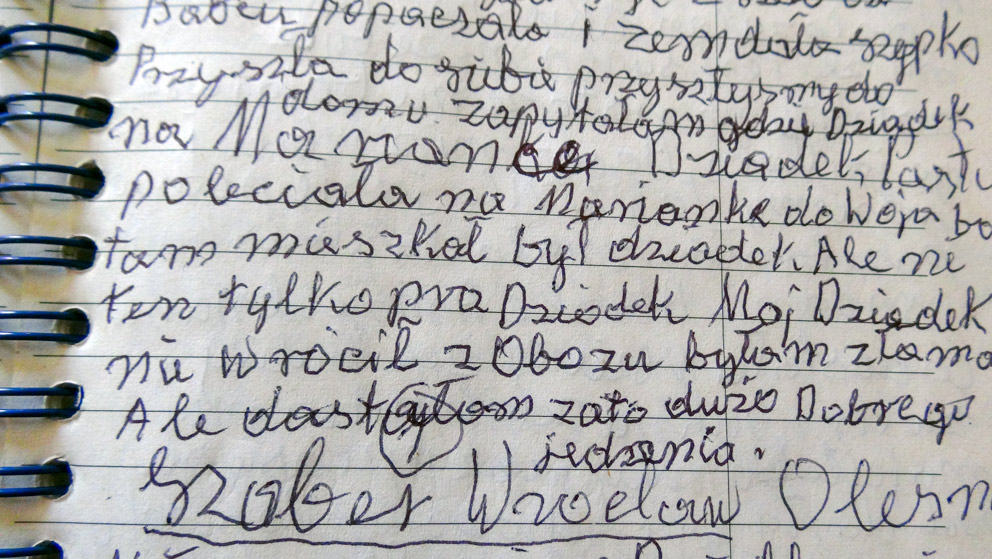 Babcu popaczała i zemdala szypko
Przyszła do siibie przysztysmy do
domu. zapytałam gdzu Dziadek
na Marian Dziadek,
poleciała na Marianke do Woja bo
tam mieszkał był dziadek. Ale ni
ten tylko pra Dziadek Moj Dziadek
nii wrócił z Obozu byłam złama
Ale dostałam zato dużo Dobrego
jedzenia.
Szaber Wrocław Oleśn